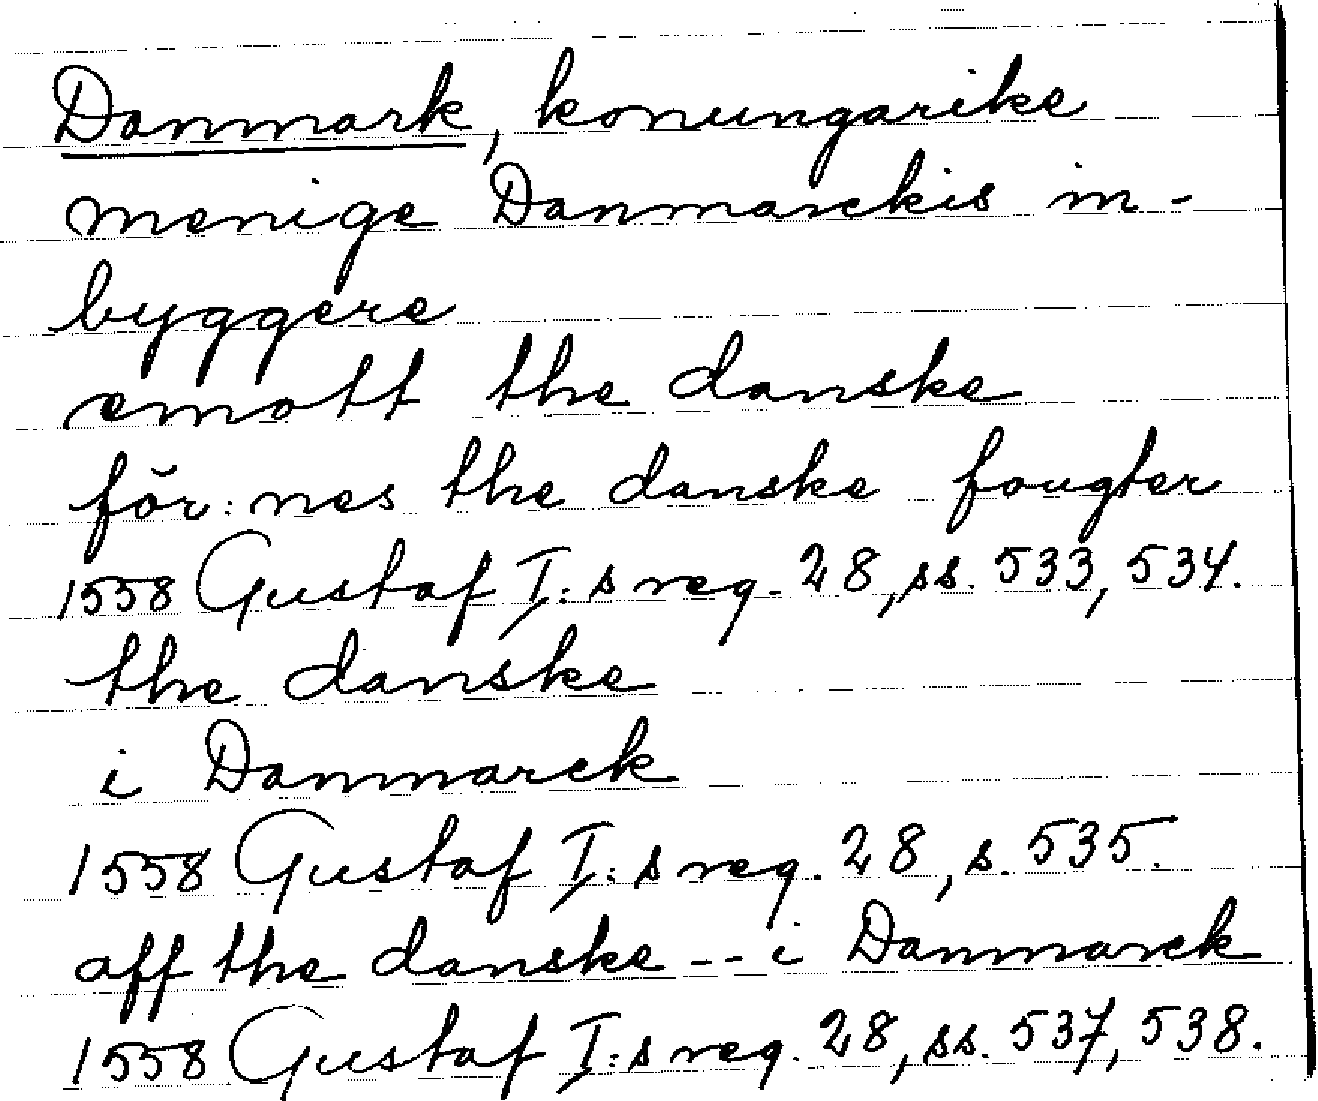 Danmark, konungarike
menige Danmarckis in-
byggere
emott the danske
för: nes the danske fougter
1558 Gustaf I:s reg. 28, ss. 533, 534.
the danske
i Danmarck
1558 Gustaf I:s reg. 28, s. 535.
aff the danske -- i Danmarck
1558 Gustaf I:s reg. 28, ss. 537, 538.